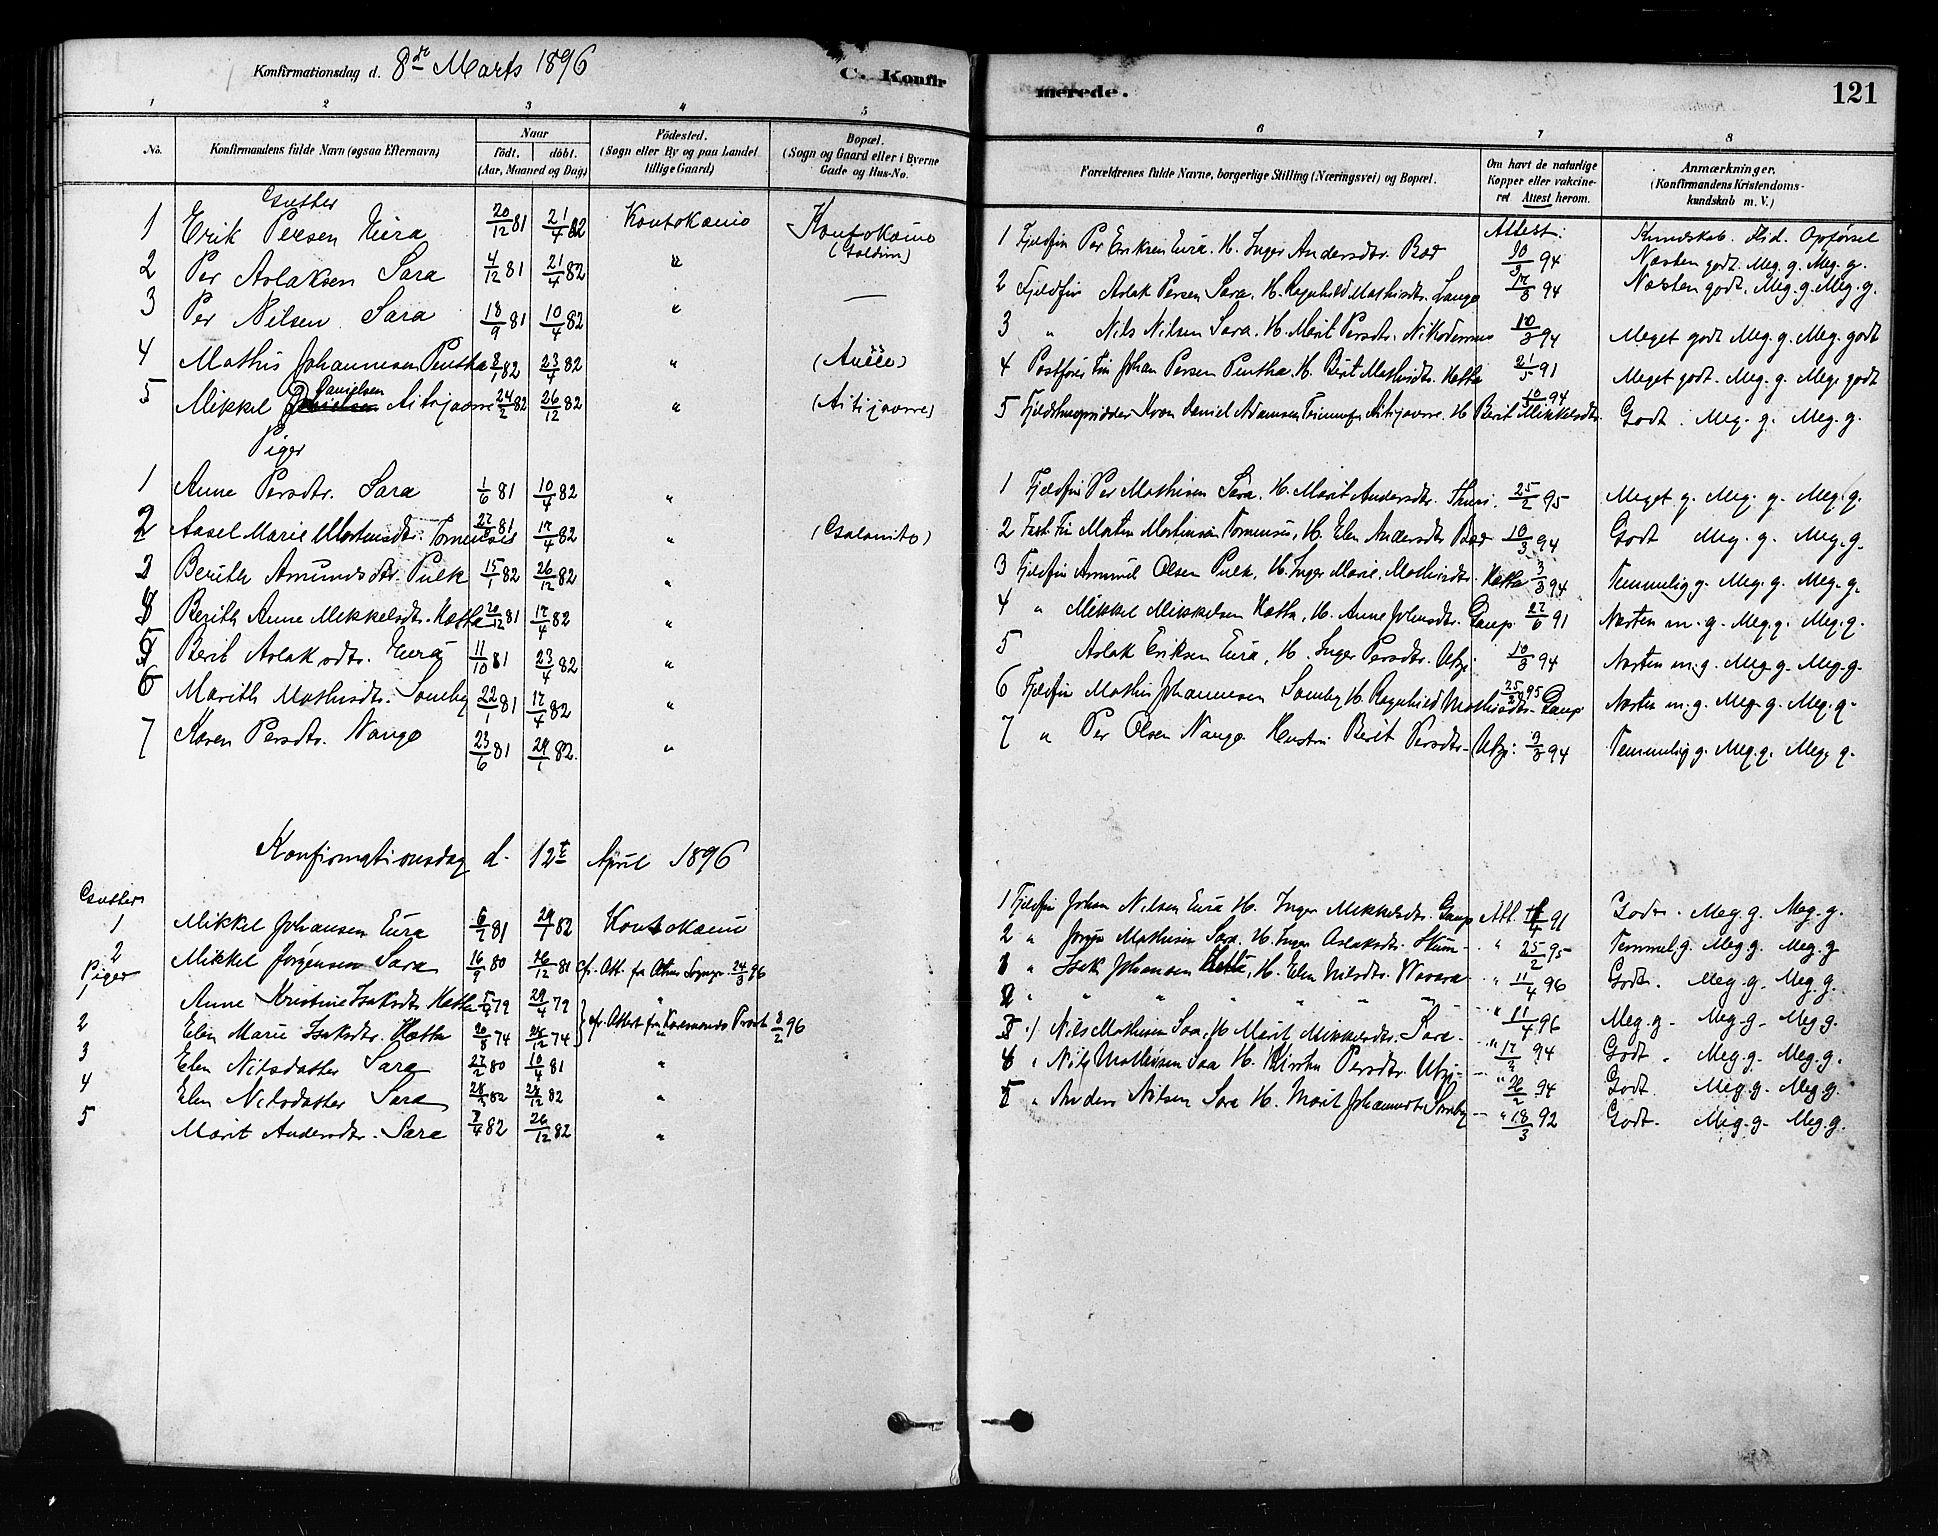 Konfirmationsdag d. 8de Marts 1896
C. Konfir
1 2 3 4 5
No. Konfirmandens fulde Navn (ogsaa Efternavn) Naar födt. döbt. (Aar, Maaned og Dag) Födested. (Sogn eller By og paa Landet tillige Gaard) Bopæl. (Sogn og Gaard eller i Byerne Gade og Hus-No.
Gutter
1 Erik Persen Eira 20/12 81 21/4 82 Koutokæino Koutokæino
2 Per Aslaksen Sara 4/12 81 21/4 82 "
3 Per Nilsen Sara 18/9 81 10/4 82 " —
4 Mathis Johannesen Pentha 8/1 82 23/4 82 "
5 Mikkel Danielsen Aitijavre 24/2 82 26/12 82 " (Aitijavre)
Piger
1 Anne Persdtr. Sara 1/6 81 10/4 82 "
2 Aasel Marie Mortensdtr. Tornensis 27/ 81 17/4 82 "
3 Berith Amundsdtr. Pulk 15/1 82 26/12 82 "
4 Berith Anne Mikkelsdtr. Hætta 20/12 81 17/4 82 "
5 Berit Aslaksdtr. Eira 11/10 81 23/4 82 "
6 Marith Mathisdtr. Somby 22/1 81 17/4 82 "
7 Karen Persdtr. Nango 23/6 81 29/1 82. "
Konfirmationsdag d. 12te April 1896
Gutter
1 Mikkel Johansen Eira 6/2 81 29/1 82 Koutokæino
2 Mikkel Jørgensen Sara 16/9 80 26/12 81 cfr. Att. fra Sognepr. 24/3 96
Piger
1 Anne Kristine Isaksdt. Hætta 79 29/4 79 "
2 Elen Marie Isaksdtr. Hætta 20/8 74 74 } cfr. Attest fra Provst 8/2 96
3 Elen Nilsdatter Sara 27/2 80 10/4 81 "
4 Elen Nilsdatter Sara 82 82 "
5 Marit Andersdtr. Sara 82 26/12 82 "
merede. 121
6 7 8
Forældrenes fulde Navne, borgerlige Stilling (Næringsvei) og Bopæl. Om havt de naturlige Kopper eller vakcineret Attest herom. Anmærkninger. (Konfirmandens Kristendomskundskab m. V.)
Attest: Kundskab. Flid. Opførsel
1 Fjeldfin Per Eriksen Eira. H. Inger Andersdtr. Bær 94 Næsten godt. Meg. g. Meg. g.
2 Fjeldfin Aslak Persen Sara. H. Ragnhild Mathisdtr. 17/3 94 Næsten godt. Meg. g. Meg. g.
3 " Nils Nilsen Sara. H. Marit Persdtr. Nikodemus 10/3 94 Meget godt Meg. g. Meg. godt
4 Postfører Fin Johan Persen Pentha. H. Berit Mathisdtr. Hætta 21/5 91 Meget godt. Meg. g. Meg. godt
5 Daniel Adamsen Aitijavre. H. Berit Mikkelsdtr. 10/3 94 Godt. Meg. g. Meg. g.
1 Fjeldfin Per Mathisen Sara. H. Marit Andersdtr. Thuri. 25/2 95 Meget g. Meg. g. Meg. g.
2 Fast Fin Morten Mortensen Tornensis, H. Elen Andersdtr. Bær 10/3 94 Godt Meg. g. Meg. g.
3 Fjeldfin Amund Olsen Pulk, H. Inger Marie Mathisdtr. Hætta 3/3 94 Temmelig g. Meg. g. Meg. g.
4 " Mikkel Mikkelsen Hætta, H. Anne Johnsdtr. Gaup. 27/6 91 Næsten m. g. Meg. g. Meg. g.
5 Aslak Eriksen Eira, H. Inger Persdtr. Utzi 10/3 94 Næsten m. g. Meg. g. Meg. g.
6 Fjeldfin Mathis Johannesen Somby H. Ragnhild Mathisdtr. Gaup 25/2 95 Næsten m. g. Meg. g. Meg. g.
7 " Per Olsen Nango Hustru Berit Persdtr. Utzi: 3/3 94 Temmelig g. Meg. g. Meg. g.
1 Fjeldfin Johan Nilsen Eira H. Inger Mikkelsdtr. Gaup Att. 91 Godt. Meg. g. Meg. g.
2 " Jørgen Mathisen Sara. H. Inger Aslaksdtr. Skum " 25/2 95 Temmel. g. Meg. g. Meg. g
1 " Isak Johansen Hætta, H. Elen Nilsdtr. " 11/4 96 Godt. Meg. g. Meg. g.
2 " " " " " " " " 11/4 96 Meg. g. Meg. g. Meg. g.
3 " Nils Mathisen Sara, H. Marit Mikkelsdtr. Sara " 17/2 94 Godt. Meg. g. Meg. g.
4 " Nils Mathisen Sara H. Kirsten Persdtr. Utzi " 26/2 94 Godt. Meg. g. Meg. g.
5 " Anders Nilsen Sara H. Marit Johannesdtr. Somby " 18/3 92 Godt. Meg. g. Meg. g.